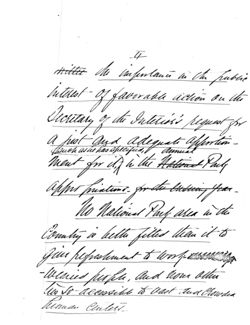 4
the importance in the public
interest - of favorable action on the
Secretary of the Interior's request for
a just and adequate
ment for in the National Park
appropriations for the
No National Park area in the
Country is better fitted than it to
give refreshment to work
wearied people, and none other
is so accessible to east and
Centers.